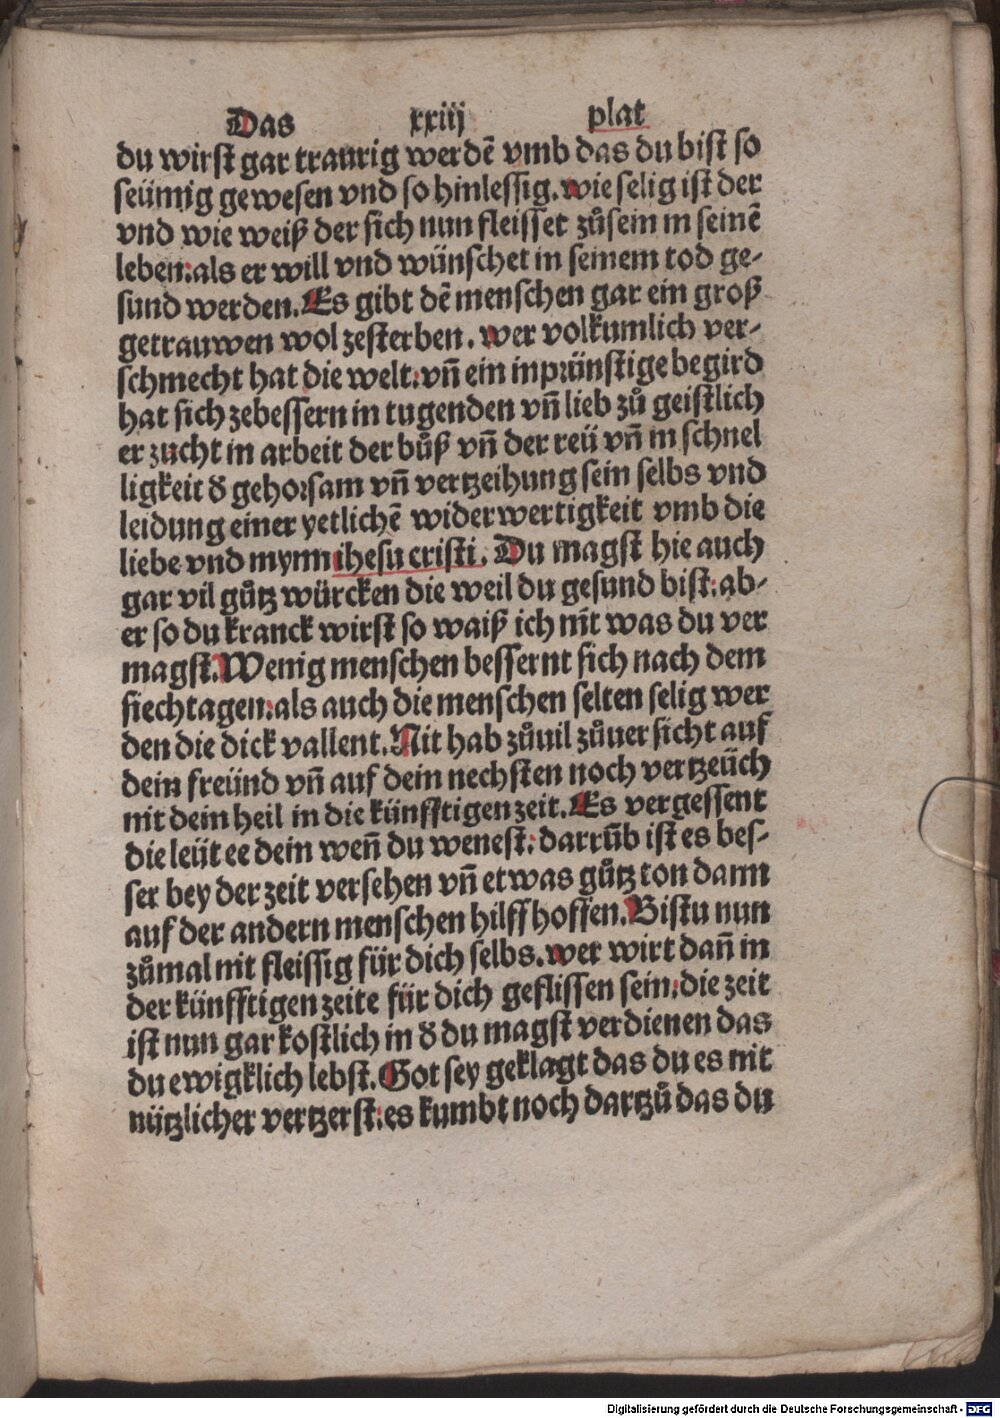 Das xxiij plat
du wirst gar traurig werdē vmb das du bist so
seümig gewesen vnd so hinlessig. wie selig ist der
vnd wie weiß der sich nun fleisset zůsein in seinē
leben: als er will vnd wünschet in seinem tod ge-
fund werden. Es gibt dē menschen gar ein groß
getrauwen wol zesterben. wer volkumlich ver-
schmecht hat die welt: vn̄ ein inprünstige begird
hat sich zebessern in tugenden vn̄ lieb zů geistlich
er zucht in arbeit der bůß vn̄ der reü vn̄ in schnel
ligkeit d̕ gehorsam vn̄ vertzeihung sein selbs vnd
leidung einer yetlichē widerwertigkeit vmb die
liebe vnd mynn ihesu cristi. Du magst hie auch
gar vil gůtz würcken die weil du gesund bist: ab-
er so du kranck wirst so waiß ich nit was du ver
magst. Wenig menschen bessernt sich nach dem
siechtagen: als auch die menschen selten selig wer
den die dick vallent. Nit hab zůuil zůuersicht auf
dein freünd vn̄ auf dein nechsten noch vertzeüch
nit dein heil in die künfftigen zeit. Es vergessent
die leüt ee dein wen̄ du wenest: darrūb ist es bes-
ser bey der zeit versehen vn̄ etwas gůtz ton dann
auf der andern menschen hilff hoffen. Bistu nun
zůmal nit fleissig für dich selbs. wer wirt dan̄ in
der künfftigen zeite für dich geflissen sein: die zeit
ist nun gar kostlich in d̕ du magst verdienen das
du ewigklich lebst. Got sey geklagt das du es nit
nützlicher vertzerst: es kumbt noch dartzů das du
Digitalisierung gefördert durch die Deutsche Forschungsgemeinschaft - DFG